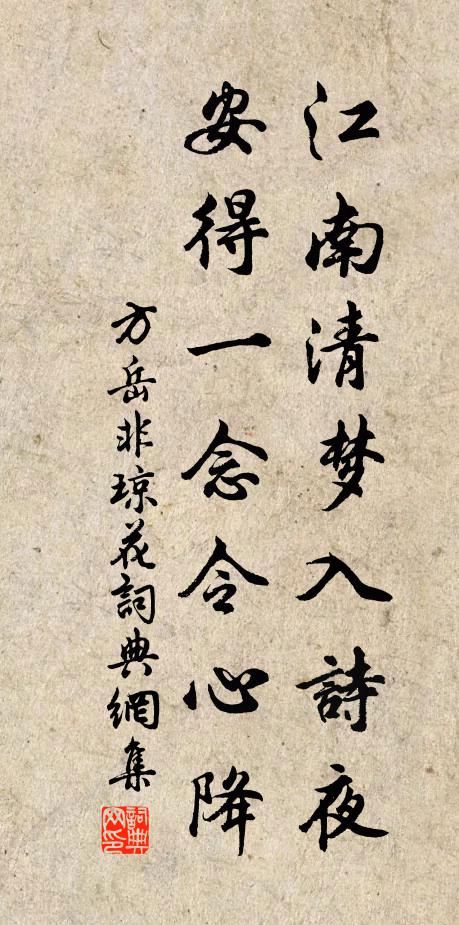 江南清梦入詩夜
安得一念令心降
方岳非琼花詞典網集
詞典網印